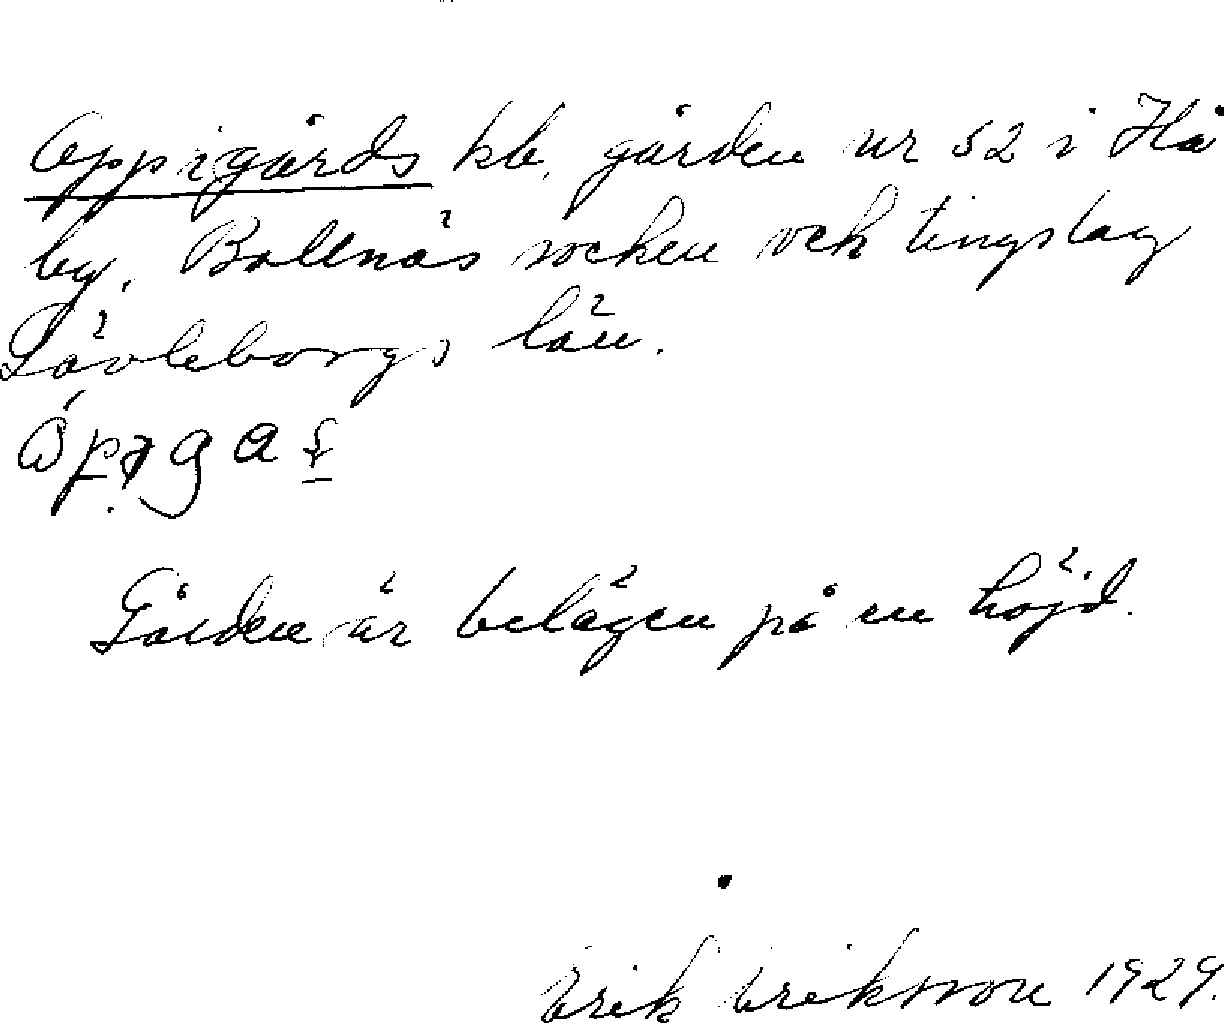 Oppigårds kb. gården nr 52 i Hå
by, Bollnäs socken och tingslag
Gävleborgs län.
Gården är belägen på en höjd.
Erik Eriksson 1929.